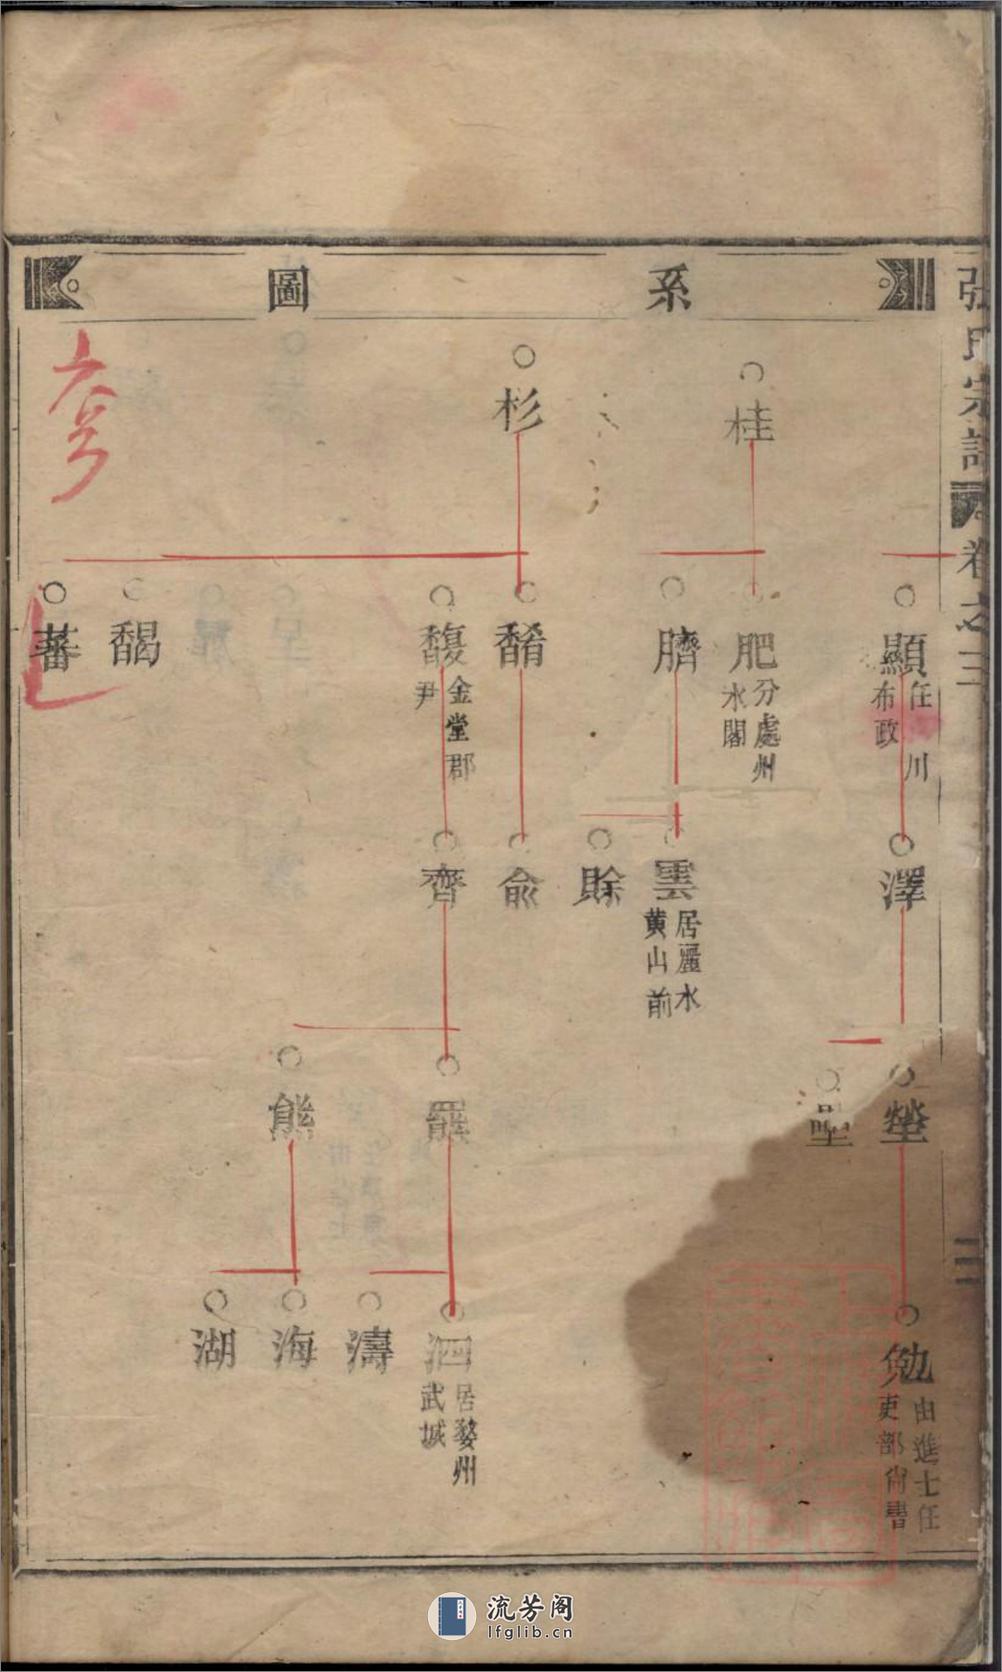 張氏宗譜
卷之三
二
系圖
桂
杉
顯 任 川布政
肥 分處州水閣
臍
餚
馥 金堂郡尹
馤
蕃
澤
雲 居麗水黄山前
賖
俞
齊
塋
羆
熊
勉 由進士任吏部尚書
泗 居婺州武城
濤
海
湖
流芳阁
lfglib.cn